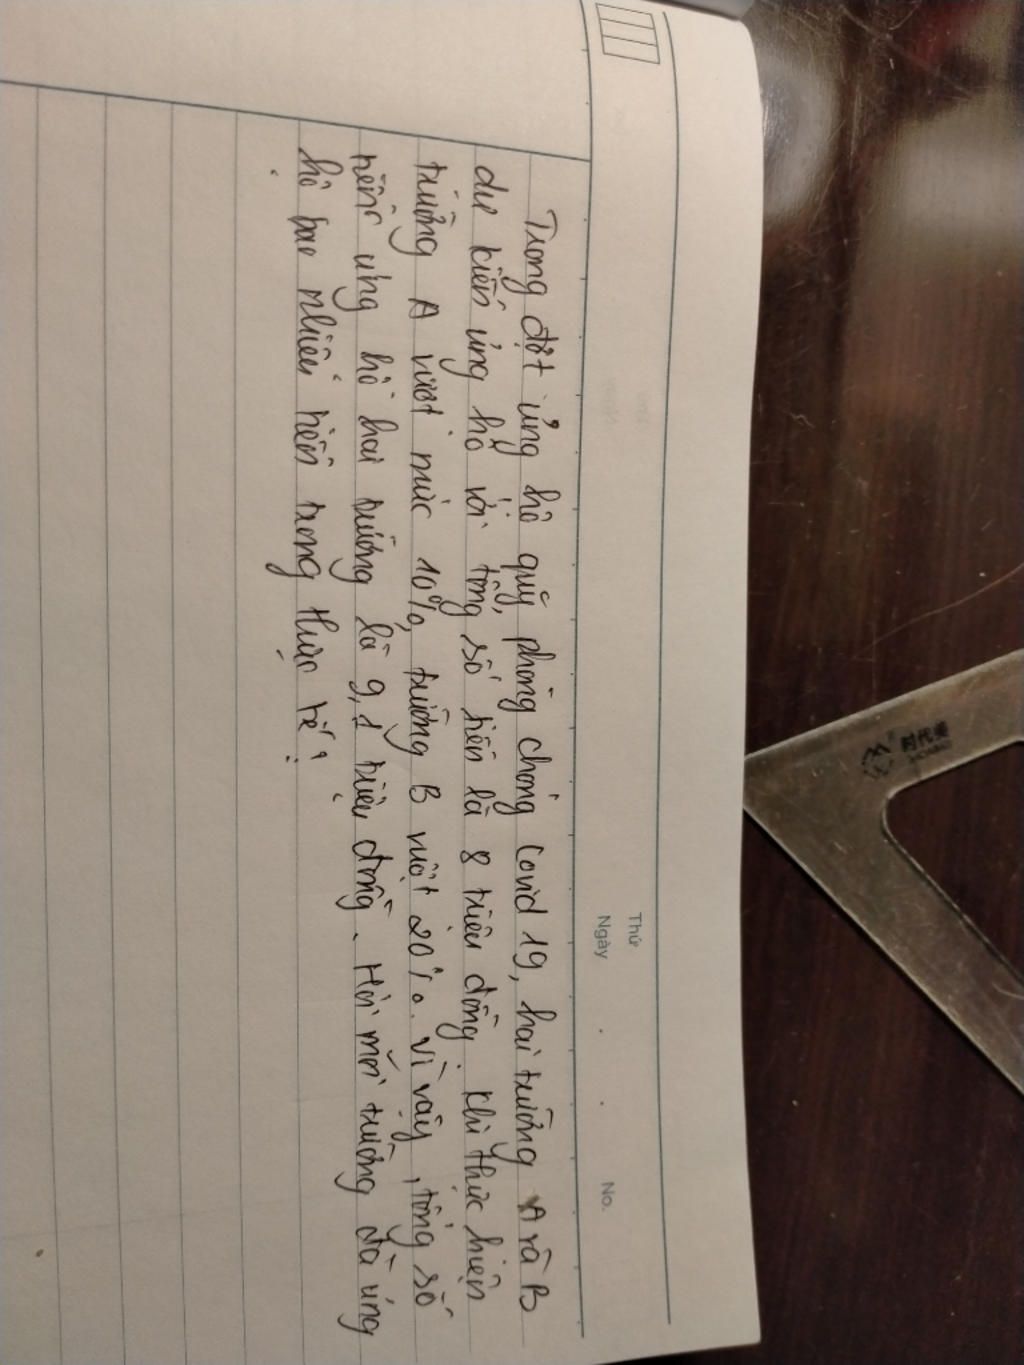 Thứ
Ngày . . No.
Trong đợt ủng hộ quỹ phòng chống Covid 19, hai trường A và B
dự kiến ủng hộ với tổng số tiền là 8 triệu đồng. Khi thực hiện
trường A vượt mức 10%, trường B vượt 20%. Vì vậy, tổng số
tiền ủng hộ hai trường là 9,1 triệu đồng. Hỏi mỗi trường đã ủng
hộ bao nhiêu tiền trong thực tế?
时代美